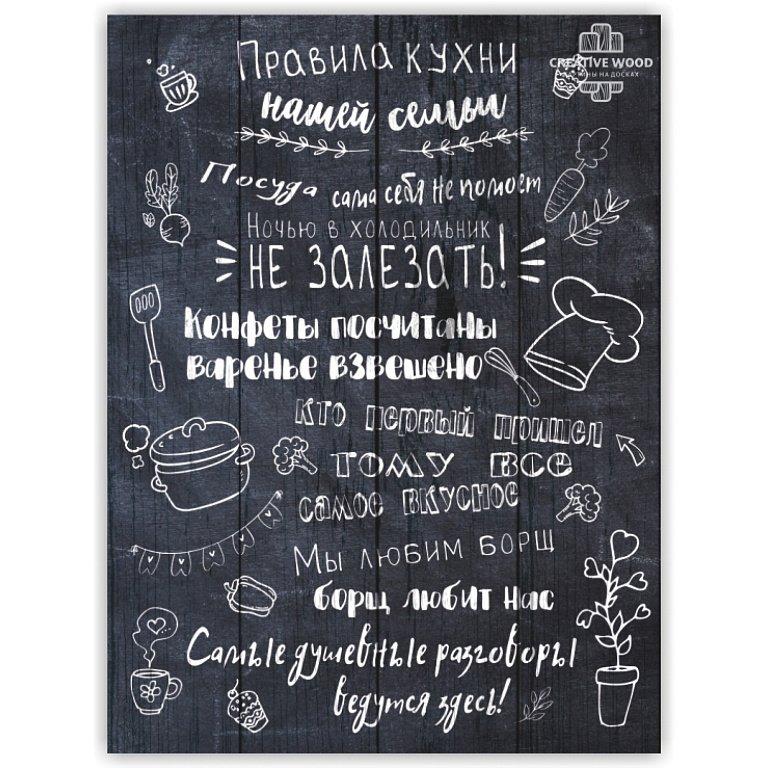 Правила кухни
нашей семьи
CREATIVE WOOD
Посуда сама себя не помоет
Ночью в холодильник
НЕ ЗАЛЕЗАТЬ!
Конфеты посчитаны
варенье взвешено
Кто первый пришел
тому все
самое вкусное
Мы любим борщ
борщ любит нас
Самые душевные разговоры
ведутся здесь!